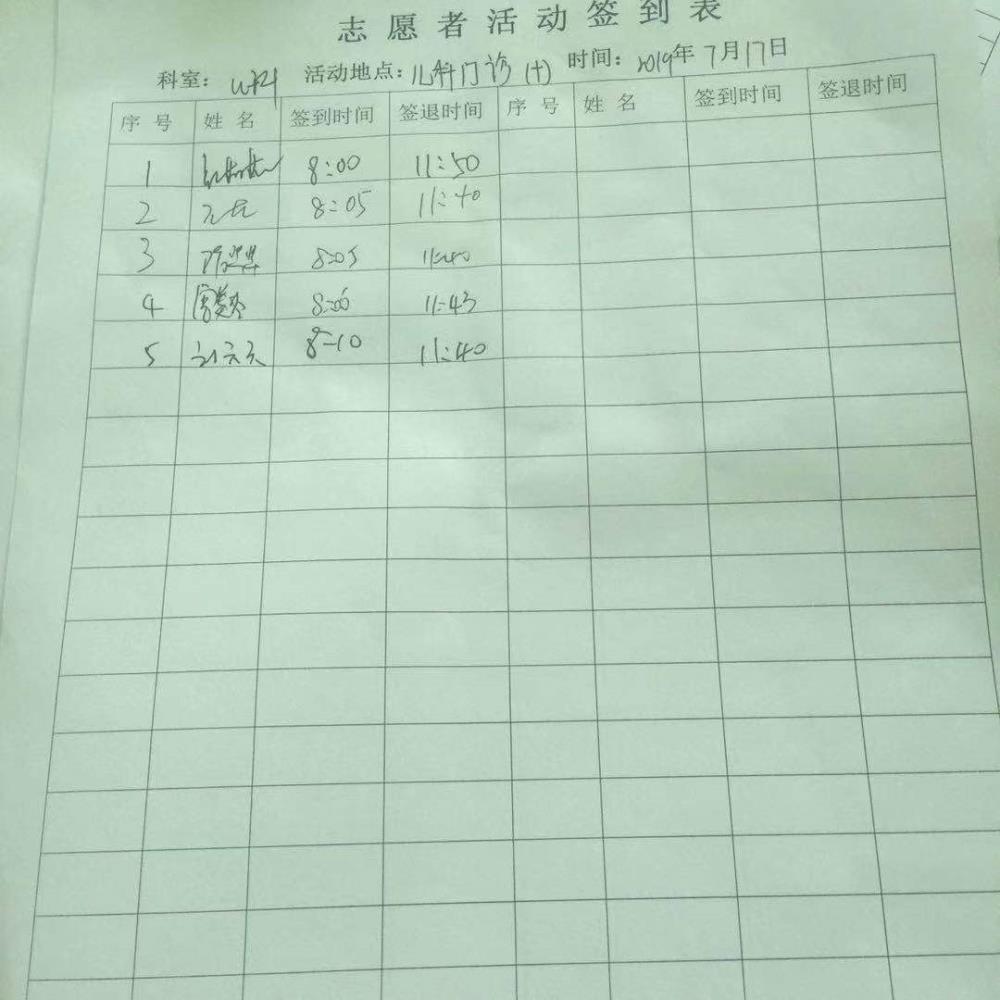 志愿者活动签到表
科室： 活动地点：儿科门诊（十） 时间：2019年7月17日
序号 姓名 签到时间 签退时间 序号 姓名 签到时间 签退时间
1 8:00 11:50
2 8:05 11:40
3 8:05 11:40
4 8:00 11:43
5 刘元元 8:10 11:40